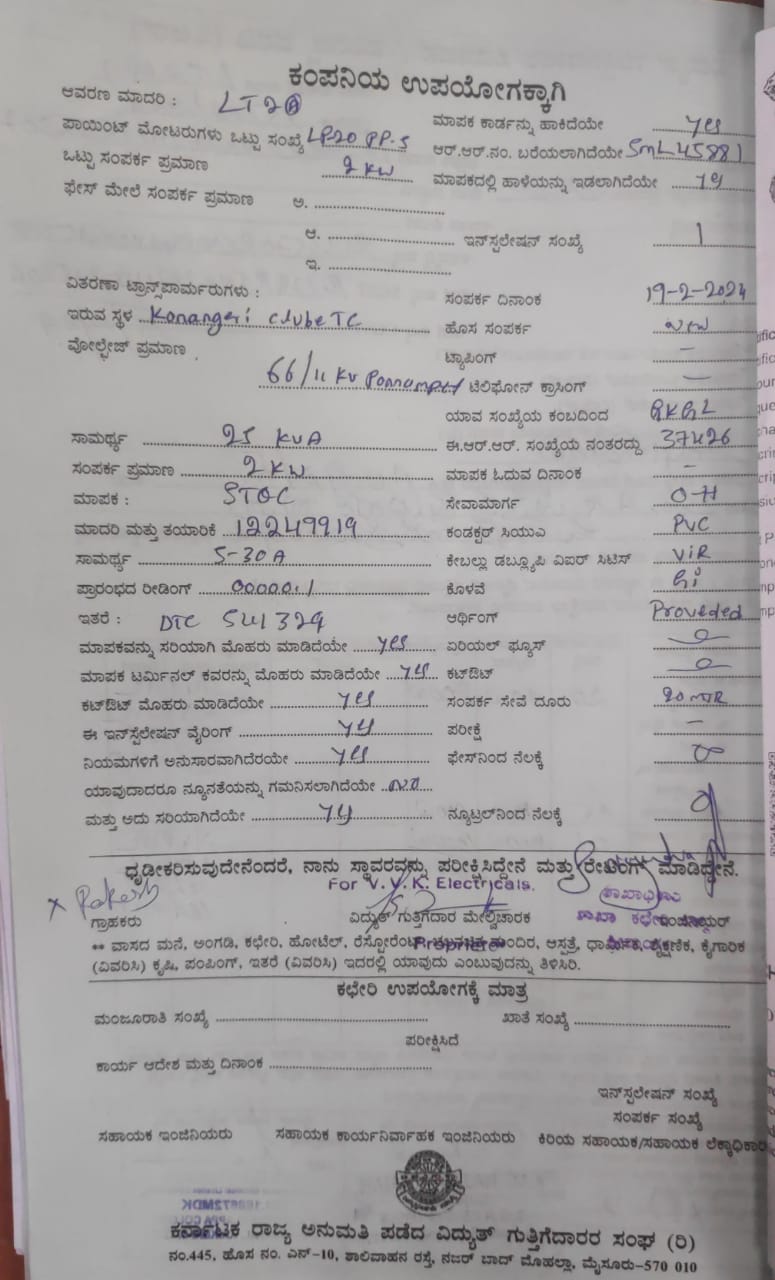 ಕಂಪನಿಯ ಉಪಯೋಗಕ್ಕಾಗಿ
ಆವರಣ ಮಾದರಿ : LT2
ಮಾಪಕ ಕಾರ್ಡನ್ನು ಹಾಕಿದೆಯೇ yes
ಪಾಯಿಂಟ್ ಮೋಟರುಗಳು ಒಟ್ಟು ಸಂಖ್ಯೆ LP20 PP-5
ಆರ್.ಆರ್.ನಂ. ಬರೆಯಲಾಗಿದೆಯೇ SML45881
ಒಟ್ಟು ಸಂಪರ್ಕ ಪ್ರಮಾಣ 2 KW
ಮಾಪಕದಲ್ಲಿ ಹಾಳೆಯನ್ನು ಇಡಲಾಗಿದೆಯೇ yes
ಫೇಸ್ ಮೇಲೆ ಸಂಪರ್ಕ ಪ್ರಮಾಣ ಅ.
ಆ. ಇನ್‌ಸ್ಟಲೇಷನ್ ಸಂಖ್ಯೆ 1
ಇ.
ವಿತರಣಾ ಟ್ರಾನ್ಸ್‌ಪಾರ್ಮರುಗಳು :
ಸಂಪರ್ಕ ದಿನಾಂಕ 19-2-2024
ಇರುವ ಸ್ಥಳ Konangeri clube TC
ಹೊಸ ಸಂಪರ್ಕ new
ವೋಲ್ಟೇಜ್ ಪ್ರಮಾಣ 66/11 KV
ಟ್ಯಾಪಿಂಗ್ –
ಟೆಲಿಫೋನ್ ಕ್ರಾಸಿಂಗ್ –
ಯಾವ ಸಂಖ್ಯೆಯ ಕಂಬದಿಂದ
ಸಾಮರ್ಥ್ಯ 25 KVA
ಈ.ಆರ್.ಆರ್. ಸಂಖ್ಯೆಯ ನಂತರದ್ದು 37426
ಸಂಪರ್ಕ ಪ್ರಮಾಣ 2 KW
ಮಾಪಕ ಓದುವ ದಿನಾಂಕ –
ಮಾಪಕ : STOC
ಸೇವಾಮಾರ್ಗ O-H
ಮಾದರಿ ಮತ್ತು ತಯಾರಿಕೆ 12249919
ಕಂಡಕ್ಟರ್ ಸಿಯುಎ PVC
ಸಾಮರ್ಥ್ಯ 5-30A
ಕೇಬಲ್ಲು ಡಬ್ಲ್ಯೂಪಿ ವಿಐರ್ ಸಿಟಿಸ್ VIR
ಪ್ರಾರಂಭದ ರೀಡಿಂಗ್ 00000.1
ಕೊಳವೆ Gi
ಇತರೆ : DTC SW1329
ಆರ್ಥಿಂಗ್ Proveded
ಮಾಪಕವನ್ನು ಸರಿಯಾಗಿ ಮೊಹರು ಮಾಡಿದೆಯೇ yes
ಏರಿಯಲ್ ಫ್ಯೂಸ್
ಮಾಪಕ ಟರ್ಮಿನಲ್ ಕವರನ್ನು ಮೊಹರು ಮಾಡಿದೆಯೇ yes
ಕಟ್‌ಔಟ್
ಕಟ್‌ಔಟ್ ಮೊಹರು ಮಾಡಿದೆಯೇ yes
ಸಂಪರ್ಕ ಸೇವೆ ದೂರು 20 MTR
ಈ ಇನ್‌ಸ್ಟೆಲೇಷನ್ ವೈರಿಂಗ್ yes
ಪರೀಕ್ಷೆ –
ನಿಯಮಗಳಿಗೆ ಅನುಸಾರವಾಗಿದೆರಯೇ yes
ಫೇಸ್‌ನಿಂದ ನೆಲಕ್ಕೆ
ಯಾವುದಾದರೂ ನ್ಯೂನತೆಯನ್ನು ಗಮನಿಸಲಾಗಿದೆಯೇ no
ಮತ್ತು ಅದು ಸರಿಯಾಗಿದೆಯೇ yes
ನ್ಯೂಟ್ರಲ್‌ನಿಂದ ನೆಲಕ್ಕೆ
ಧೃಡೀಕರಿಸುವುದೇನೆಂದರೆ, ನಾನು ಸ್ಥಾವರವನ್ನು ಪರೀಕ್ಷಿಸಿದ್ದೇನೆ ಮತ್ತು ರೇಟಿಂಗ್ ಮಾಡಿದ್ದೇನೆ.
For V.V.K. Electricals.
x Rakesh
ಗ್ರಾಹಕರು
ವಿದ್ಯುತ್ ಗುತ್ತಿಗೆದಾರ ಮೇಲ್ವಿಚಾರಕ
Proprietor
** ವಾಸದ ಮನೆ, ಅಂಗಡಿ, ಕಛೇರಿ, ಹೋಟೆಲ್, ರೆಸ್ಟೋರೆಂಟ್, ಮಂದಿರ, ಆಸ್ಪತ್ರೆ, ಧಾರ್ಮಿಕ, ಶೈಕ್ಷಣಿಕ, ಕೈಗಾರಿಕ
(ವಿವರಿಸಿ) ಕೃಷಿ, ಪಂಪಿಂಗ್, ಇತರೆ (ವಿವರಿಸಿ) ಇದರಲ್ಲಿ ಯಾವುದು ಎಂಬುವುದನ್ನು ತಿಳಿಸಿರಿ.
ಕಛೇರಿ ಉಪಯೋಗಕ್ಕೆ ಮಾತ್ರ
ಮಂಜೂರಾತಿ ಸಂಖ್ಯೆ ಖಾತೆ ಸಂಖ್ಯೆ
ಪರೀಕ್ಷಿಸಿದೆ
ಕಾರ್ಯ ಆದೇಶ ಮತ್ತು ದಿನಾಂಕ
ಇನ್‌ಸ್ಟಲೇಷನ್ ಸಂಖ್ಯೆ
ಸಂಪರ್ಕ ಸಂಖ್ಯೆ
ಸಹಾಯಕ ಇಂಜಿನಿಯರು ಸಹಾಯಕ ಕಾರ್ಯನಿರ್ವಾಹಕ ಇಂಜಿನಿಯರು ಕಿರಿಯ ಸಹಾಯಕ/ಸಹಾಯಕ ಲೆಕ್ಕಾಧಿಕಾರಿ
ಕರ್ನಾಟಕ ರಾಜ್ಯ ಅನುಮತಿ ಪಡೆದ ವಿದ್ಯುತ್ ಗುತ್ತಿಗೆದಾರರ ಸಂಘ (ರಿ)
ನಂ.445, ಹೊಸ ನಂ. ಎನ್-10, ಶಾಲಿವಾಹನ ರಸ್ತೆ, ನಜರ್ ಬಾದ್ ಮೊಹಲ್ಲಾ, ಮೈಸೂರು-570 010